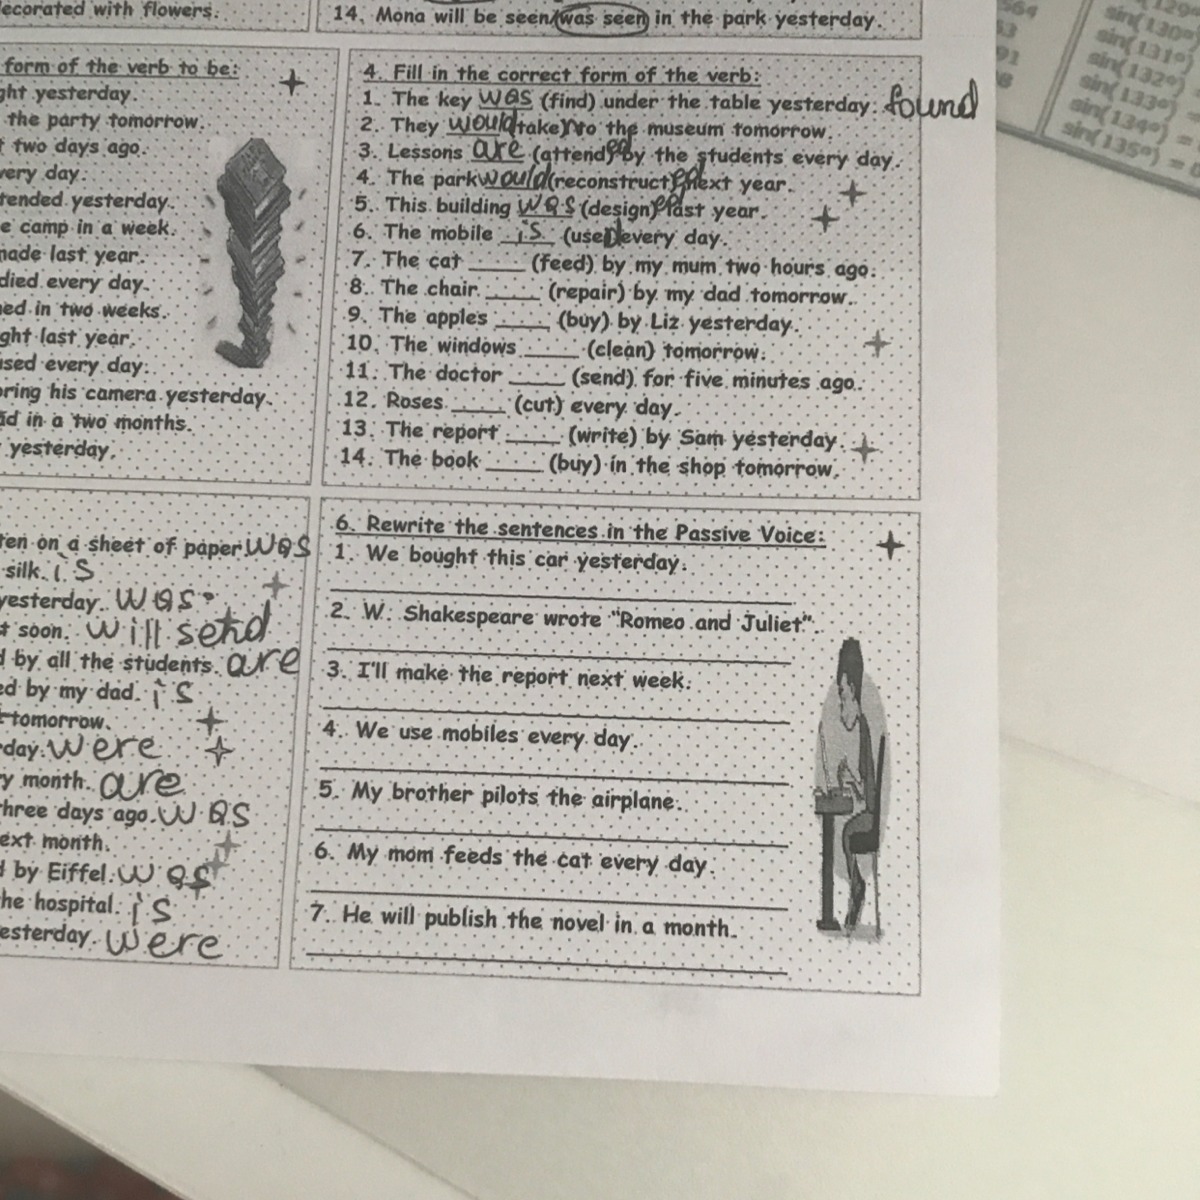 decorated with flowers.
14. Mona will be seen/was seen in the park yesterday.
form of the verb to be:
ght yesterday.
the party tomorrow.
t two days ago.
very day.
tended yesterday.
e camp in a week.
made last year.
died every day.
ned in two weeks.
ght last year.
used every day.
bring his camera yesterday.
ad in a two months.
yesterday.
4. Fill in the correct form of the verb:
1. The key was (find) under the table yesterday. found
2. They would (take) to the museum tomorrow.
3. Lessons are (attend)ed by the students every day.
4. The park would (reconstruct)ed next year.
5. This building was (design)ed last year.
6. The mobile is (use)d every day.
7. The cat _____ (feed) by my mum two hours ago.
8. The chair _____ (repair) by my dad tomorrow.
9. The apples _____ (buy) by Liz yesterday.
10. The windows _____ (clean) tomorrow.
11. The doctor _____ (send) for five minutes ago.
12. Roses _____ (cut) every day.
13. The report _____ (write) by Sam yesterday.
14. The book _____ (buy) in the shop tomorrow.
ten on a sheet of paper. was
silk. is
yesterday. was
t soon. will send
d by all the students. are
ed by my dad. is
tomorrow.
day. were
y month. are
three days ago. was
ext month.
d by Eiffel. was
the hospital. is
esterday. were
6. Rewrite the sentences in the Passive Voice:
1. We bought this car yesterday.
2. W. Shakespeare wrote "Romeo and Juliet".
3. I'll make the report next week.
4. We use mobiles every day.
5. My brother pilots the airplane.
6. My mom feeds the cat every day.
7. He will publish the novel in a month.
564
53
91
8
129°
sin(130°)
sin(131°)
sin(132°)
sin(133°)
sin(134°) =
sin(135°) = 0